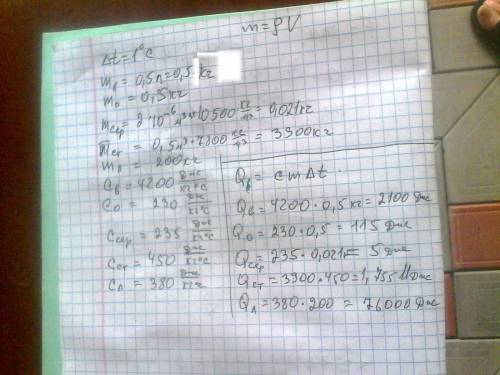 m = ρV
Δt = 1°C
m_в = 0,5л = 0,5 кг
m_о = 0,5кг
m_сер = 2·10⁻⁶ м³ · 10500 кг/м³ = 0,021кг
m_ст = 0,5м³ · 7800 кг/м³ = 3900кг
m_л = 200кг
C_в = 4200 Дж/кг°C
C_о = 230 Дж/кг°C
C_сер = 235 Дж/кг°C
C_ст = 450 Дж/кг°C
C_л = 380 Дж/кг°C
Q_в = cmΔt
Q_в = 4200·0,5 кг = 2100 Дж
Q_о = 230·0,5 = 115 Дж
Q_сер = 235·0,021 = 5 Дж
Q_ст = 3900·450 = 1,755 МДж
Q_л = 380·200 = 76000 Дж